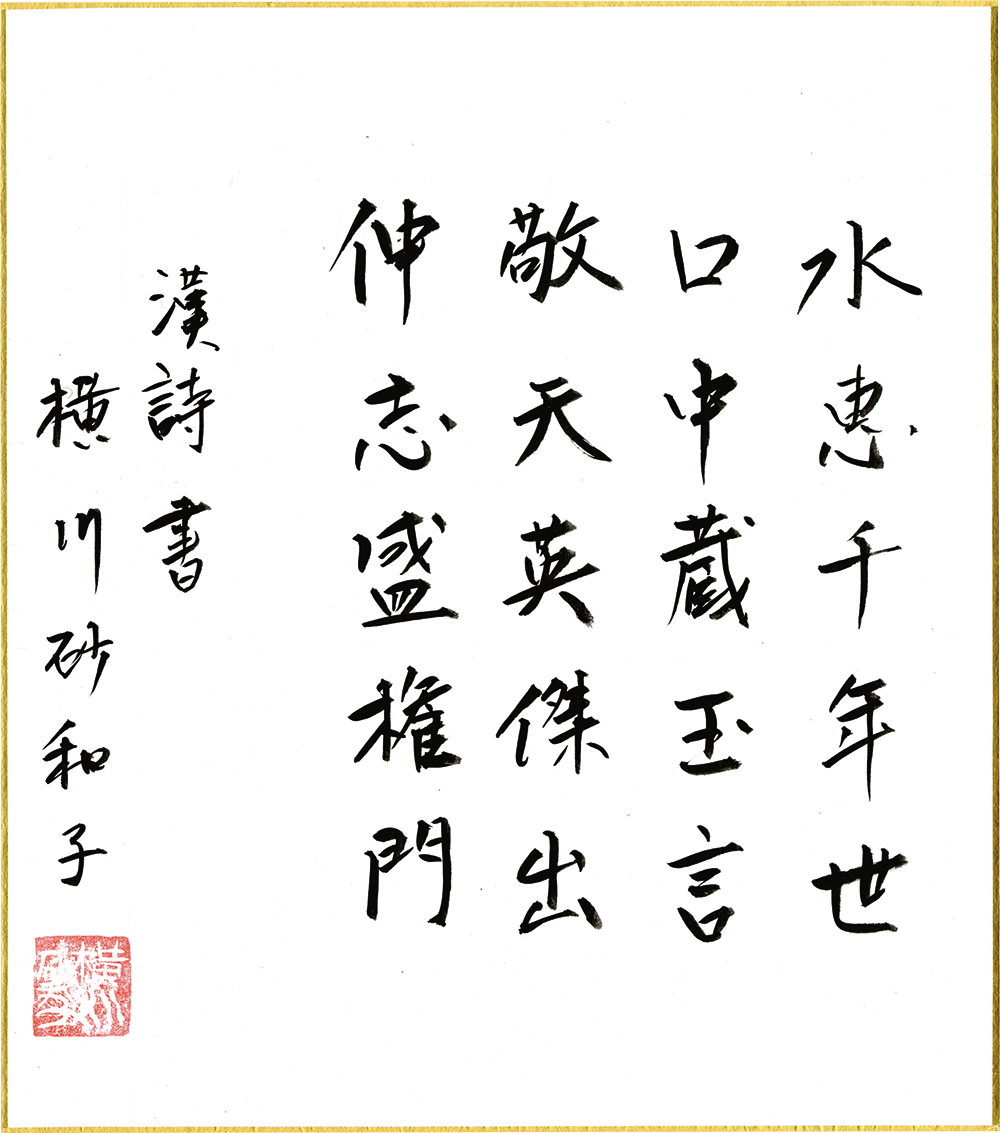 水恵千年世
口中蔵玉言
敬天英傑出
伸志盛権門
漢詩 書
横川砂和子